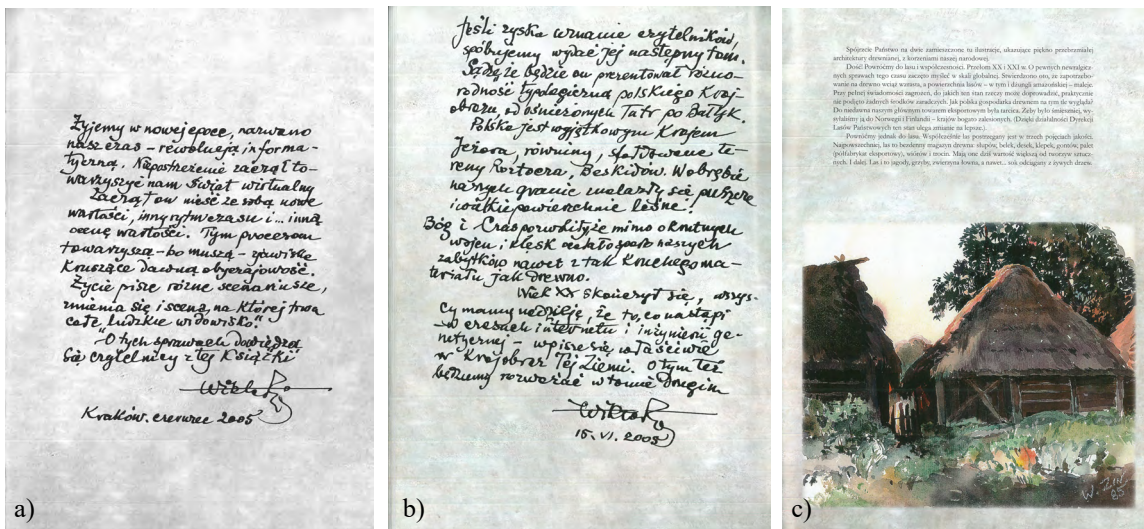 Żyjemy w nowej epoce, nazwano
nasz czas – rewolucją informa-
tyczną. Niepostrzeżenie zaczął to-
warzyszyć nam świat wirtualny
Zaczął on nieść ze sobą nowe
wartości, inny rytm czasu i... inną
ocenę wartości. Tym procesom
towarzyszą – bo muszą – zjawiska
Kruszące dawną obyczajowość.
Życie pisze różne scenariusze,
zmienia się i scena, na której trwa
całe „ludzkie widowisko."
O tych sprawach dowiedzą
się czytelnicy z tej Książki
Kraków. czerwiec 2005
a)
Jeśli zyska uznanie czytelników,
spróbujemy wydać jej następny tom.
Sądzę że będzie on prezentował różno-
rodność typologiczną polskiego Kraj-
obrazu, od ośnieżonych Tatr po Bałtyk.
Polska jest wyjątkowym Krajem
Jeziora, równiny, sfałdowane te-
reny Roztocza, Beskidów. W obrębie
naszych granic znalazły się puszcze
i wielkie powierzchnie leśne!
Bóg i Czas pozwolił że mimo okrutnych
wojen i klęsk ocalało sporo naszych
zabytków nawet z tak Kruchego ma-
teriału jak drewno.
Wiek XX skończył się, wszys-
cy mamy nadzieję, że to, co nastąpi
w czasach internetu i inżynierii ge-
netycznej – wpisze się właściwie
w Krajobraz Tej Ziemi. O tym też
będziemy rozważać w tomie drugim
15. VI. 2005
b)
Spójrzcie Państwo na dwie zamieszczone tu ilustracje, ukazujące piękno przebrzmiałej
architektury drewnianej, z korzeniami naszej narodowej.
Dość! Powróćmy do lasu i współczesności. Przełom XX i XXI w. O pewnych newralgicz-
nych sprawach tego czasu zaczęto myśleć w skali globalnej. Stwierdzono oto, że zapotrzebo-
wanie na drewno wciąż wzrasta, a powierzchnia lasów – w tym i dżungli amazońskiej – maleje.
Przy pełnej świadomości zagrożeń, do jakich ten stan rzeczy może doprowadzić, praktycznie
nie podjęto żadnych środków zaradczych. Jak polska gospodarka drewnem na tym tle wygląda?
Do niedawna naszym głównym towarem eksportowym była tarcica. Żeby było śmieszniej, wy-
syłaliśmy ją do Norwegii i Finlandii – krajów bogato zalesionych. (Dzięki działalności Dyrekcji
Lasów Państwowych ten stan ulega zmianie na lepsze.)
Powróćmy jednak do lasu. Współcześnie las postrzegany jest w trzech pojęciach jakości.
Najpowszechniej, las to bezdenny magazyn drewna: słupów, belek, desek, klepek, gontów, palet
(półfabrykat eksportowy), wiórów i trocin. Mają one dziś wartość większą od tworzyw sztucz-
nych. I dalej. Las i to jagody, grzyby, zwierzyna łowna, a nawet... sok odciągany z żywych drzew.
W. ZIN
85
c)